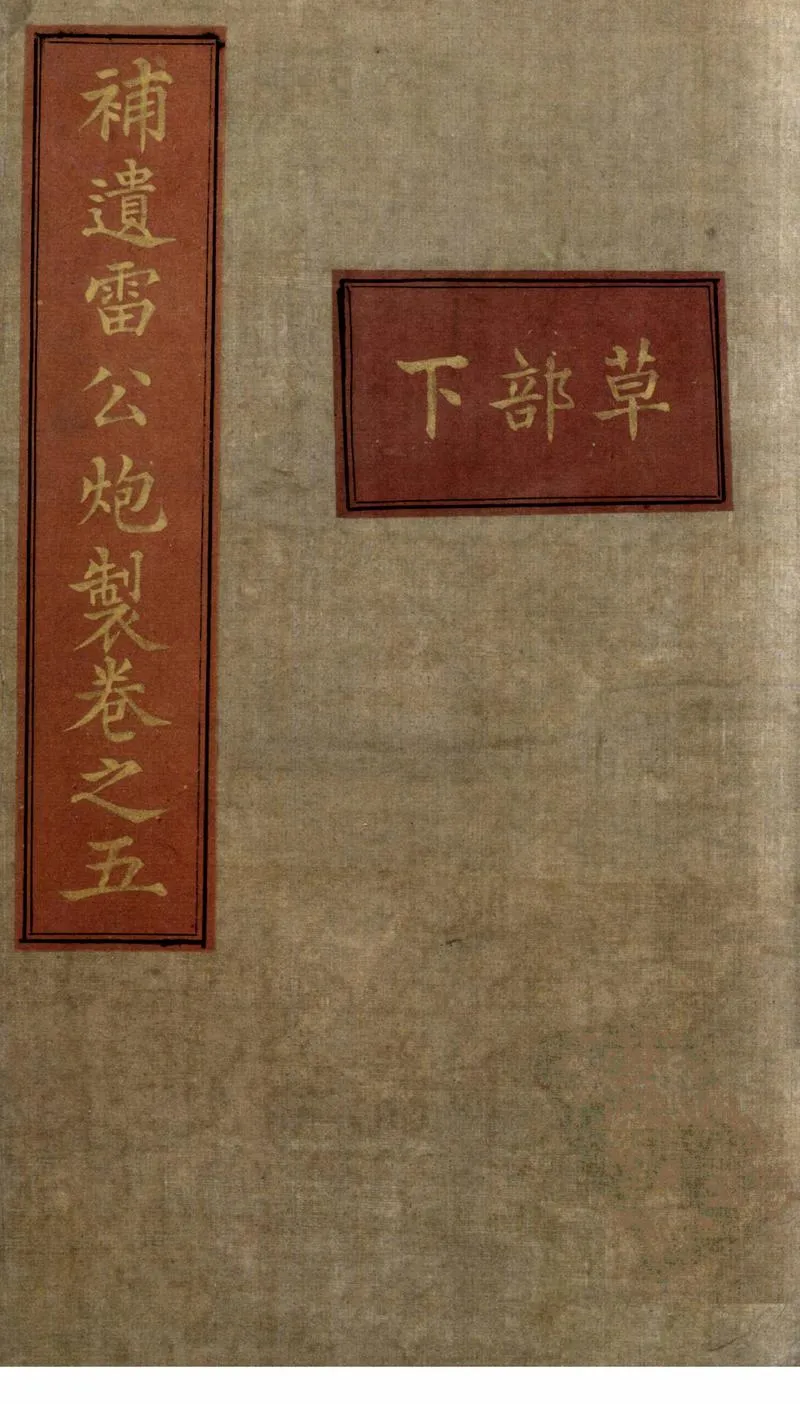 補遺雷公炮製卷之五
草部下